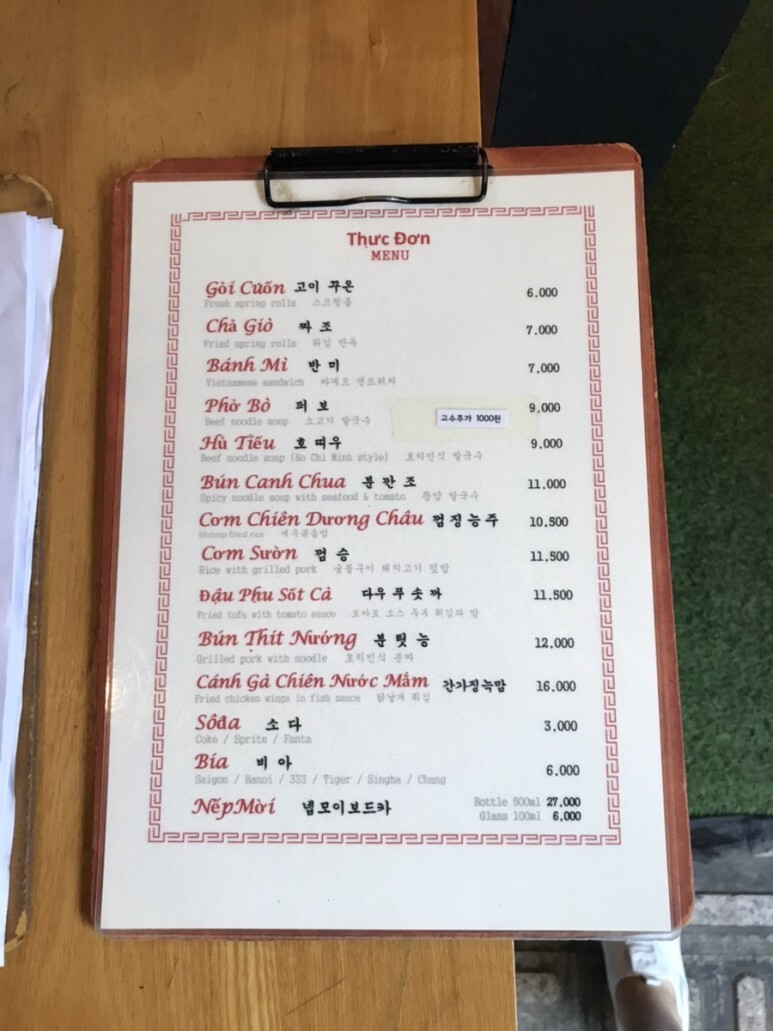 Thực Đơn
MENU
Gỏi Cuốn 고이 꾸온 6,000
Fresh spring rolls 스프링롤
Chả Giò 짜 조 7,000
Fried spring rolls 튀김 만두
Bánh Mì 반 미 7,000
Vietnamese sandwich 바게트 샌드위치
Phở Bò 퍼 보 9,000
Beef noodle soup 소고기 쌀국수 고수추가 1000원
Hủ Tiếu 호 띠우 9,000
Beef noodle soup (Ho Chi Minh style) 호치민식 쌀국수
Bún Canh Chua 분 깐 조 11,000
Spicy noodle soup with seafood & tomato 똠얌 쌀국수
Cơm Chiên Dương Châu 껌 징 능 주 10,500
Shrimp fried rice 새우볶음밥
Cơm Sườn 껌 승 11,500
Rice with grilled pork 숯불구이 돼지고기 덮밥
Đậu Phu Sốt Cà 다우 푸 솟 까 11,500
Fried tofu with tomato sauce 토마토 소스 두부 튀김과 밥
Bún Thịt Nướng 분 팃 능 12,000
Grilled pork with noodle 호치민식 분짜
Cánh Gà Chiên Nước Mắm 간가징늑맘 16,000
Fried chicken wings in fish sauce 닭날개 튀김
Sôđa 소 다 3,000
Coke / Sprite / Fanta
Bia 비 아 6,000
Saigon / Hanoi / 333 / Tiger / Singha / Chang
NếpMới 넵모이보드카 Bottle 500ml 27,000
Glass 100ml 6,000